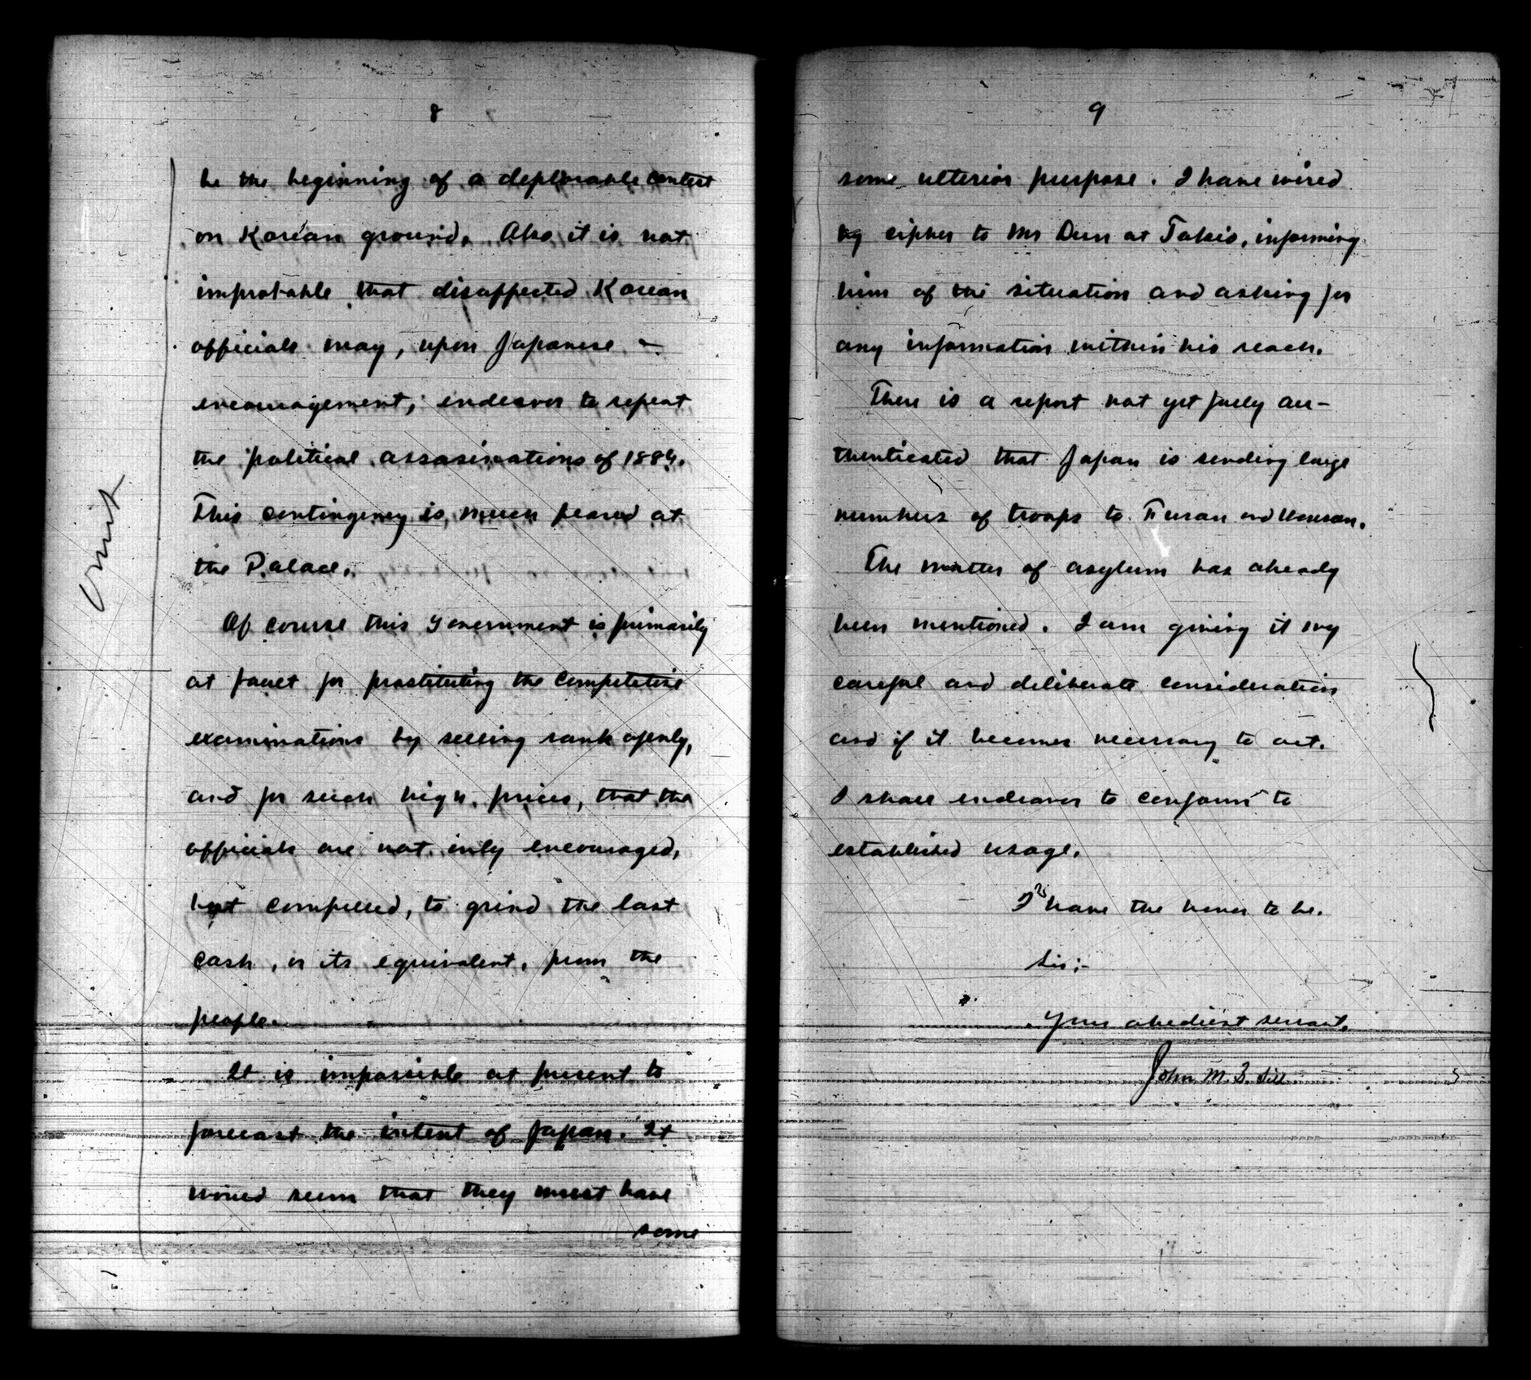 8
be the beginning of a deplorable contest
on Korean ground. Also it is not
improbable that disaffected Korean
officials may, upon Japanese
encouragement, endeavor to repeat
the political assasinations of 1884.
This contingency is much feared at
the Palace.
Of course this Government is primarily
at fault for prostituting the competitive
examinations by selling rank openly,
and for such high prices, that the
officials are not only encouraged,
but compelled, to grind the last
cash, or its equivalent, from the
people.
It is impossible at present to
forecast the intent of Japan. It
would seem that they must have
some
Omit
9
some ulterior purpose. I have wired
by cipher to Mr Dun at Tokio, informing
him of the situation and asking for
any information within his reach.
There is a report not yet fully au-
thenticated that Japan is sending large
numbers of troops to Fusan and Wonsan.
The matter of asylum has already
been mentioned. I am giving it my
careful and deliberate consideration
and if it becomes necessary to act.
I shall endeavor to conform to
established usage.
I have the honor to be.
Sir:-
Your obedient servant.
John M. B. Sill